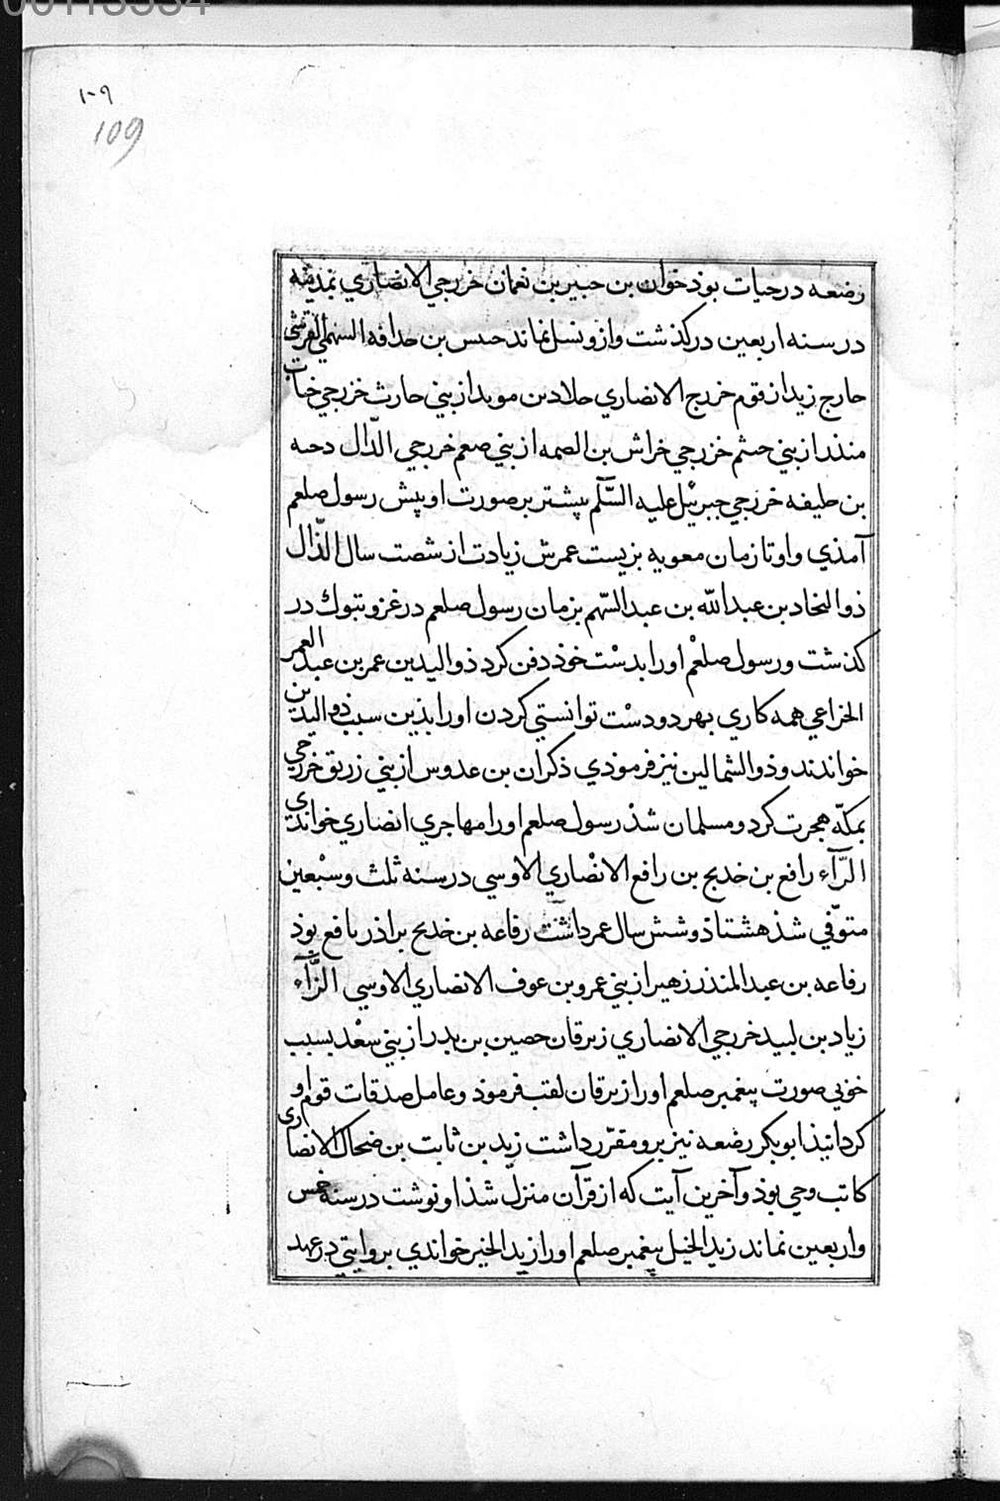 00113554
١٠٩
109
رضعه در حیات بوذ خوان بن جبیر بن نعمان خزرجي الانصاري بمدینه
در سنه اربعین در کذشت وازو نسل نماند حبیس بن حذافه السهمي القرشي
حارج زید از قوم خزرج الانصاري حلاد بن موید از بني حارث خزرجي خباب
منذر از بني حشم خزرجي خراش بن الصمه از بني صعم خزرجي الدّال دحیه
بن خلیفه خزرجي جبرئیل علیه السّلم بیشتر بر صورت او پیش رسول صلعم
آمذي واو تا زمان معویه بزیست عمرش زیادت از شصت سال الذّال
ذو النجاد بن عبد الله بن عبد السّهم بزمان رسول صلعم در غزو تبوك در
کذشت ورسول صلعم اورا بدست خوذ دفن کرد ذو الیدین عمر بن عبد العمر
الخزاعي همه کاري بهر دو دست توانستي کردن اورا بذین سبب ذو الیدین
خواندند وذو الشمالین نیز فرموذي ذکران بن عدوس از بني زریق خزرجي
بمکّه هجرت کرد ومسلمان شذ رسول صلعم اورا مهاجري انصاري خواندي
الرّآء رافع بن خدیج بن رافع الانصاري الاوسي در سنه ثلث وسبعین
متوفّي شذ هشتاذ وشش سال عمر داشت رفاعه بن خدیج براذر رافع بوذ
رفاعه بن عبد المنذر زهیر از بني عمرو بن عوف الانصاري الاوسي الزّآء
زیاد بن لبید خزرجي الانصاري زبرقان حصین بن بدر از بني سعد بسبب
خوبي صورت پیغمبر صلعم اورا زبرقان لقب فرموذ وعامل صدقات قوم او
کردانیذ ابو بکر رضعه نیز برو مقرّر داشت زید بن ثابت بن ضحاك الانصاري
کاتب وحي بوذ وآخرین آیت که از قرآن منزل شذ او نوشت در سنه خمس
واربعین نماند زید الخیل پیغمبر صلعم اورا زید الخیر خواندي بروایتي در عهد